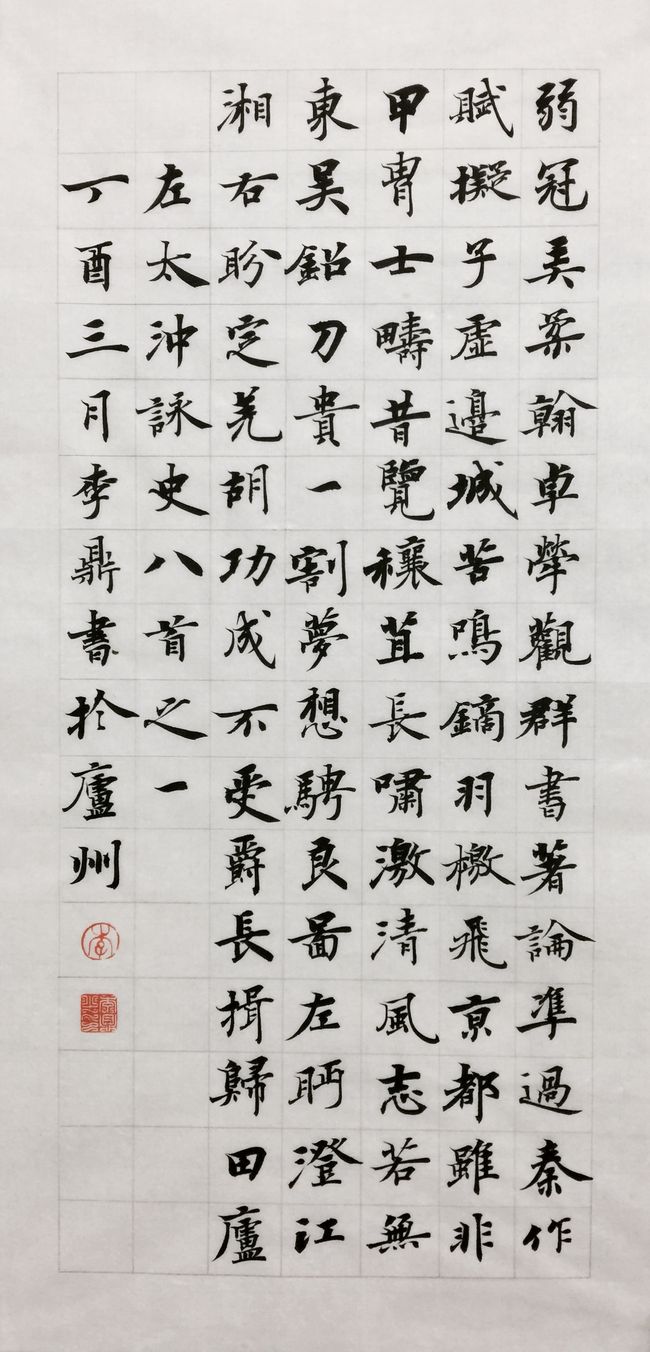 弱冠弄柔翰卓犖觀群書著論準過秦作
賦擬子虛邊城苦鳴鏑羽檄飛京都雖非
甲胄士疇昔覽穰苴長嘯激清風志若無
東吳鉛刀貴一割夢想騁良圖左眄澄江
湘右盼定羌胡功成不受爵長揖歸田廬
左太沖詠史八首之一
丁酉三月李鼎書於廬州
李